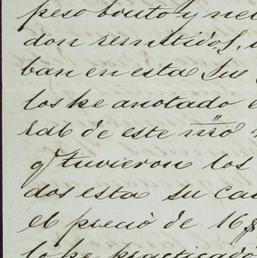 peso bruto y ne
don remitidos,
ban en esta Sus
los he anotado e
ral de este mo
q tuvieron los
dos esta su ca
el precio de 16$
lo he practicado